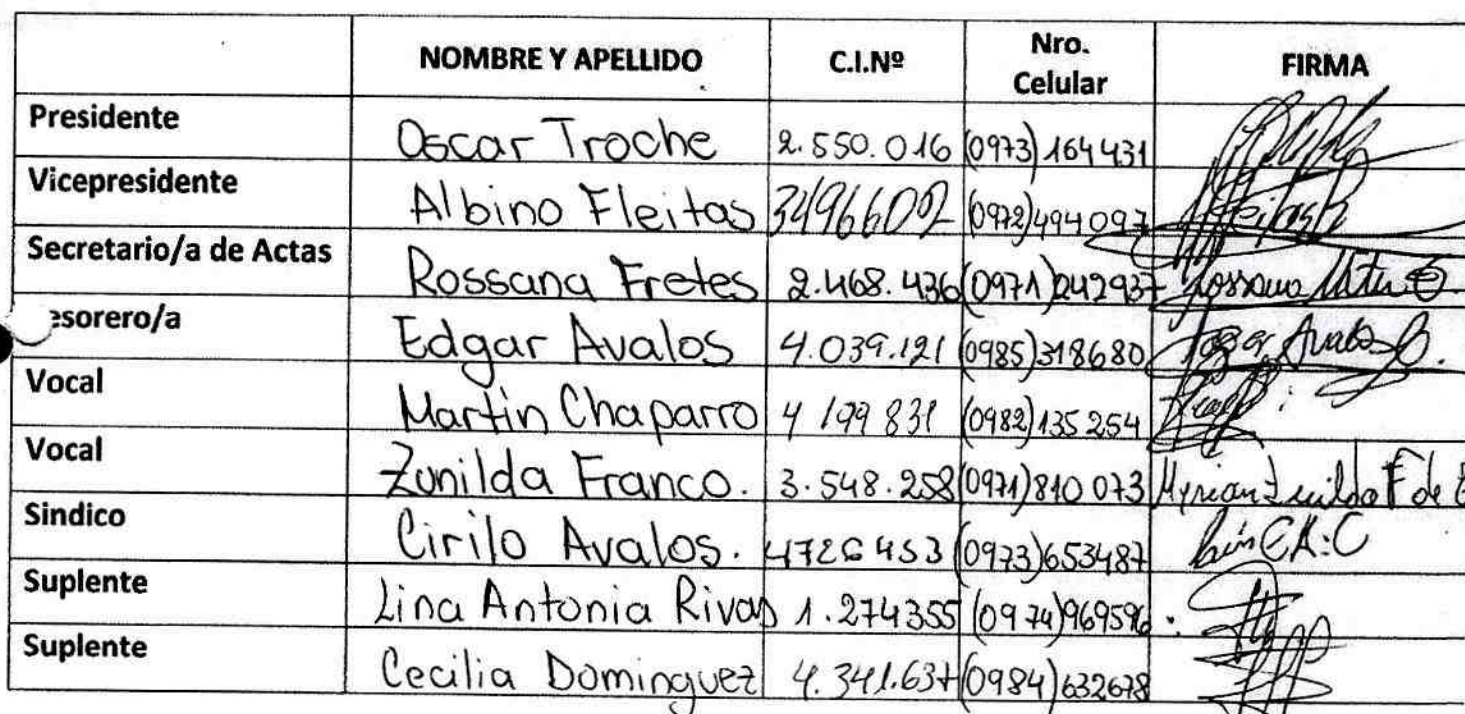 NOMBRE Y APELLIDO C.I.Nº Nro. Celular FIRMA
Presidente Oscar Troche 2.550.016 (0973) 164431
Vicepresidente Albino Fleitas 3496602 (0972)494097
Secretario/a de Actas Rossana Fretes 2.468.436 (0971)242937
esorero/a Edgar Avalos 4.039.121 (0985)318680 Edgar Avalos
Vocal Martin Chaparro 4 199 831 (0982)135 254
Vocal Zunilda Franco. 3.548.258 (0971)810 073 Myrian Zunilda F de
Sindico Cirilo Avalos. 4726453 (0973)653487
Suplente Lina Antonia Rivas 1.274355 (0974)969596
Suplente Cecilia Dominguez 4.341.637 (0984)632678